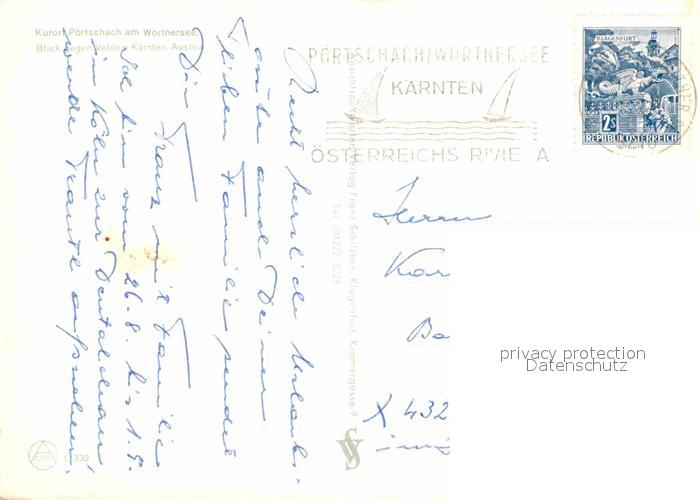 Kurort Pörtschach am Wörthersee,
Blick gegen Velden, Kärnten, Austria
PÖRTSCHACH/WÖRTHERSEE
KÄRNTEN
ÖSTERREICHS RIVIE A
KLAGENFURT
2S
REPUBLIK ÖSTERREICH
Recht herzliche Urlaubs-
grüße auch Deiner
lieben Familie sendet
Dir
Franz mit Familie
Ich bin vom 26.8. bis 1.9.
in Köln zur Dentalschau,
werde Traute aufsuchen!
Franz Schilcher, Klagenfurt, Kramergasse 9
Tel. (04222) 5228
Herrn
Kar
Ba
X 432
privacy protection
Datenschutz
332